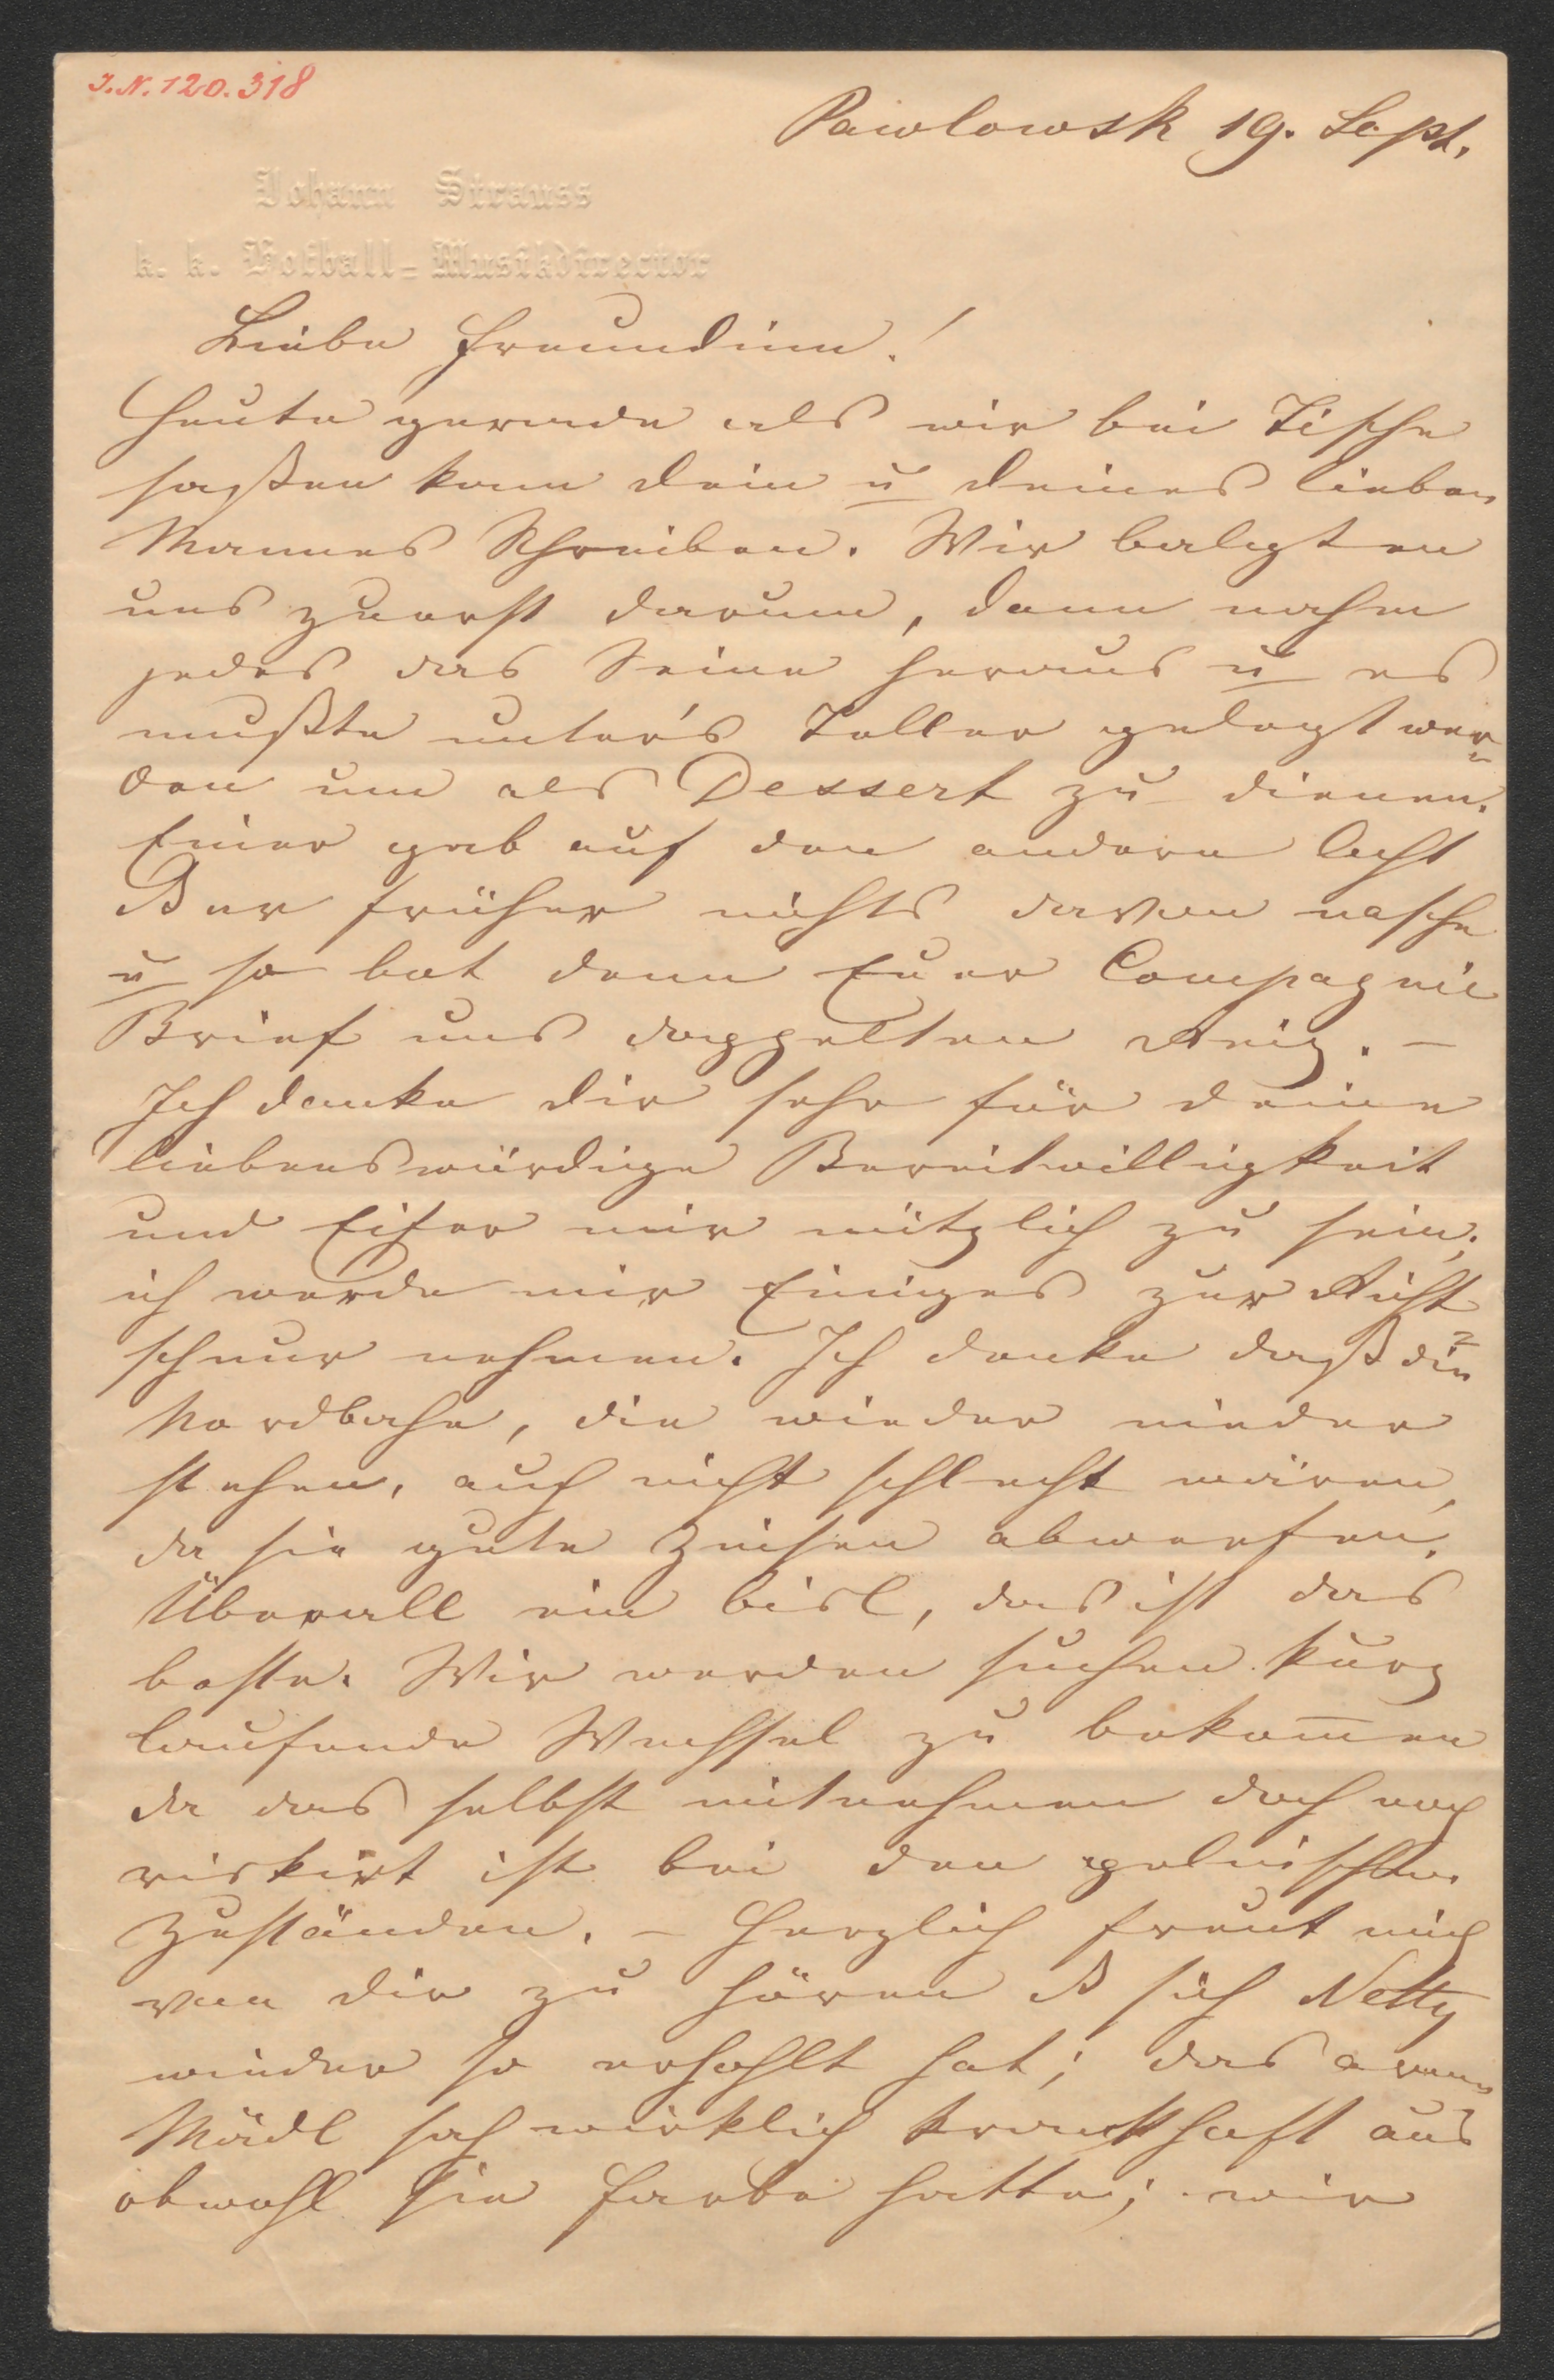 I.N. 120.318
Pawlowsk 19. Sept.
Johann Strauss
k. k. Hofball-Musikdirector
Liebe Freundinn!
Heute gerade als wir bei Tische
saßen kam dein u deines lieben
Mannes Schreiben. Wir balgten
uns zuerst darum, dann nahm
jedes das Seine heraus u es
mußte unter's Teller gelegt wer-
den um als Dessert zu dienen.
Einer gab auf den andern Acht
ß er früher nichts davon nasche
u so bot denn Euer Compagnie
Brief uns doppelten Reiz. –
Ich danke dir sehr für deine
liebenswürdige Bereitwilligkeit
und Eifer mir nützlich zu sein;
ich werde mir Einiges zur Richt-
schnur nehmen. Ich denke daß die
Nordbahn, die wieder nieder
stehen, auch nicht schlecht wären,
da sie gute Zinsen abwerfen.
Überall ein bisl, das ist das
beste. Wir werden suchen kurz
laufende Wechsel zu bekom̄en
da das selbst mitnehmen doch noch
riskirt ist bei den polnischen
Zuständen. – Herzlich freut mich
von dir zu hören ß sich Netty
wieder so erhohlt hat; das arme
Mädl sah wirklich krankhaft aus
obwohl sie Farbe hatte; wir